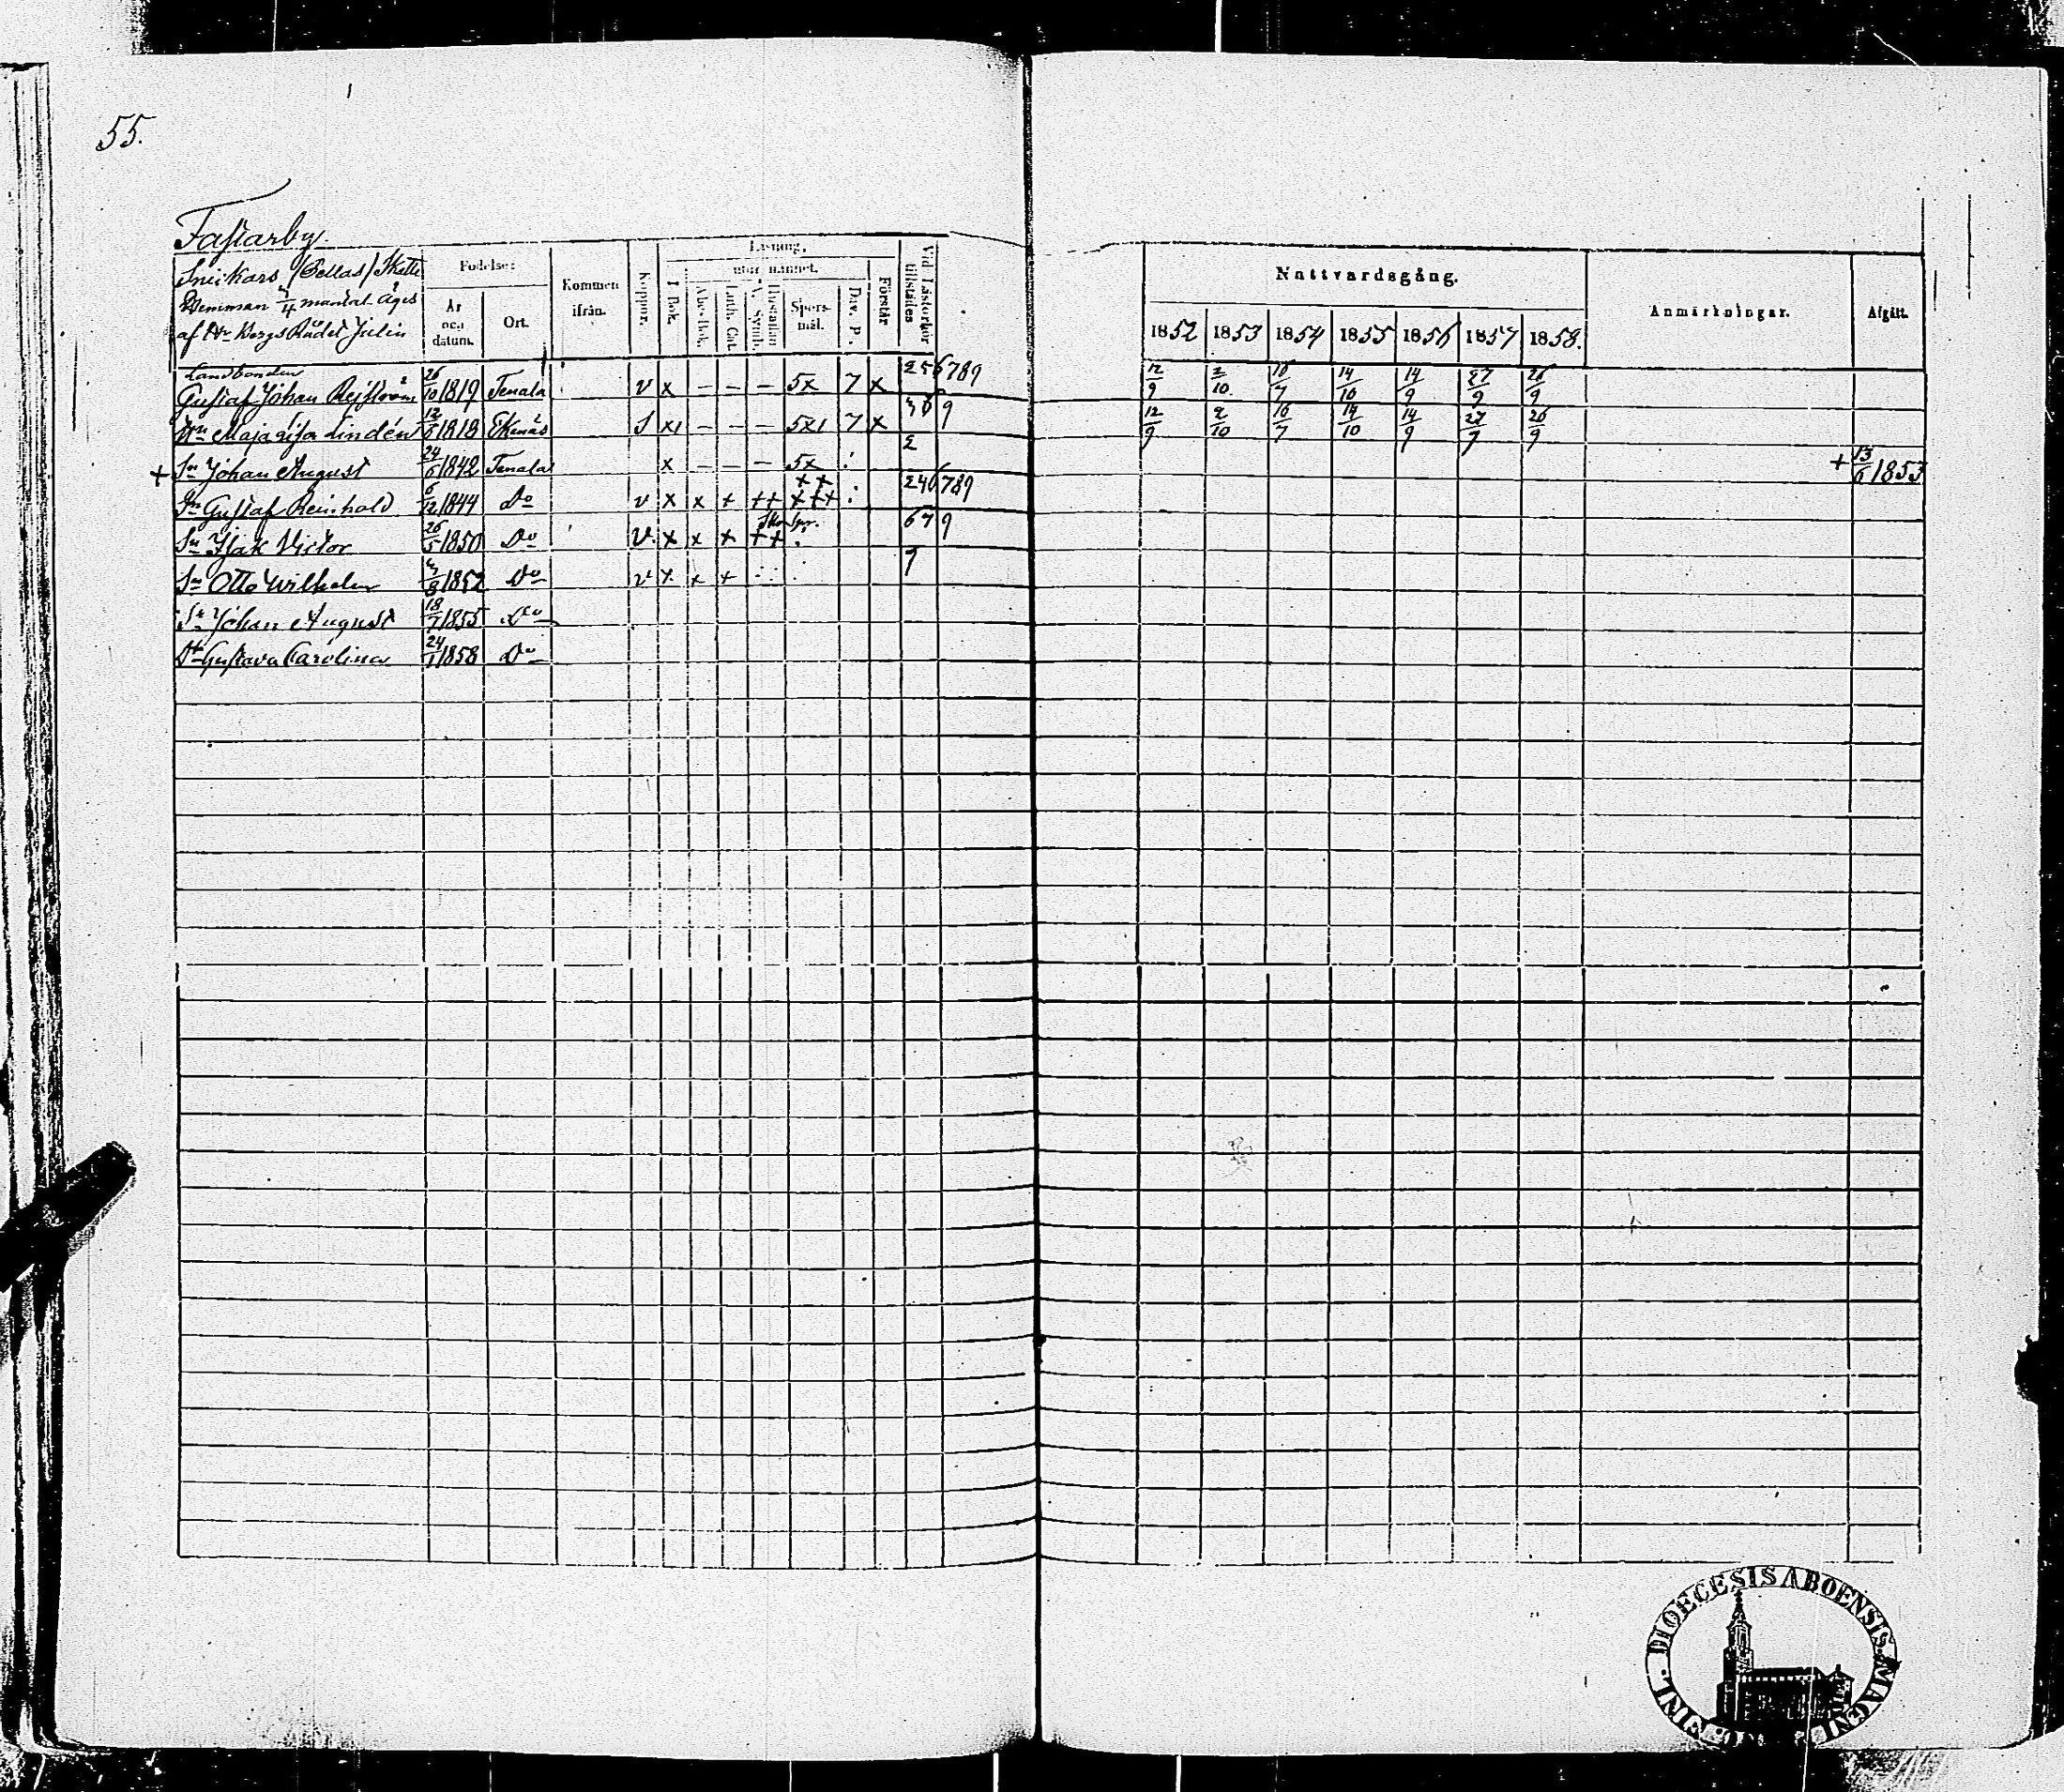 55.
Fastarby.
Sneikars /Bellas/ Skatte
Hemman 3/4 mantal. Äges
af Hr BergsRådet Julin
Födelse:
År och datum.
Ort.
Kommen ifrån.
Koppor.
Läsning,
I Bok.
utur minnet.
Abc-Bok.
Luth. Cat.
A. Symb.
Hustaflan
Spörsmål.
Dav. P.
Förstår
Vid Läsförhör tillstädes
Nattvardsgång.
1852 1853 1854 1855 1856 1857 1858.
Anmärkningar.
Afgått.
Landbonden
Gustaf Johan Rejström 26/10 1819 Tenala v x – – – 5x 7 x 256789 12/9 2/10 16/7 14/10 14/9 27/9 26/9
Hu Maja Lisa Lindén 12/6 1818 Ekenäs S x1 – – – 5x1 7 x 369 12/9 2/10 16/7 14/10 14/9 27/9 26/9
+ Sn Johan August 24/6 1842 Tenala x – – – 5x 2 + 13/6 1853
Sn Gustaf Reinhold 6/12 1844 Do v x x + ++ +++ ++ 246789
Sn Isak Victor 26/5 1850 Do v. x x + ++ 679
Sn Otto Wilhelm 3/8 1852 Do v x x + 9
Sn Johan August 18/7 1855 Do
Dr Gustava Carolina 24/1 1858 Do
DIOECESIS ABOENSIS. MAGNI
FINL.